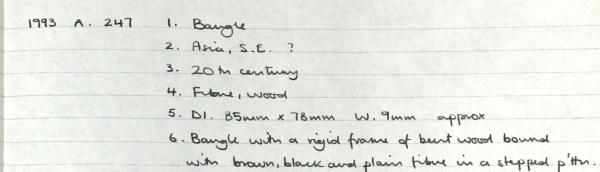 1993 A. 247 1. Bangle
2. Asia, S.E. ?
3. 20th century
4. Fibre, wood
5. DI. 85mm x 78mm W. 9mm approx
6. Bangle with a rigid frame of bent wood bound
with brown, black and plain fibre in a stepped p'ttn.